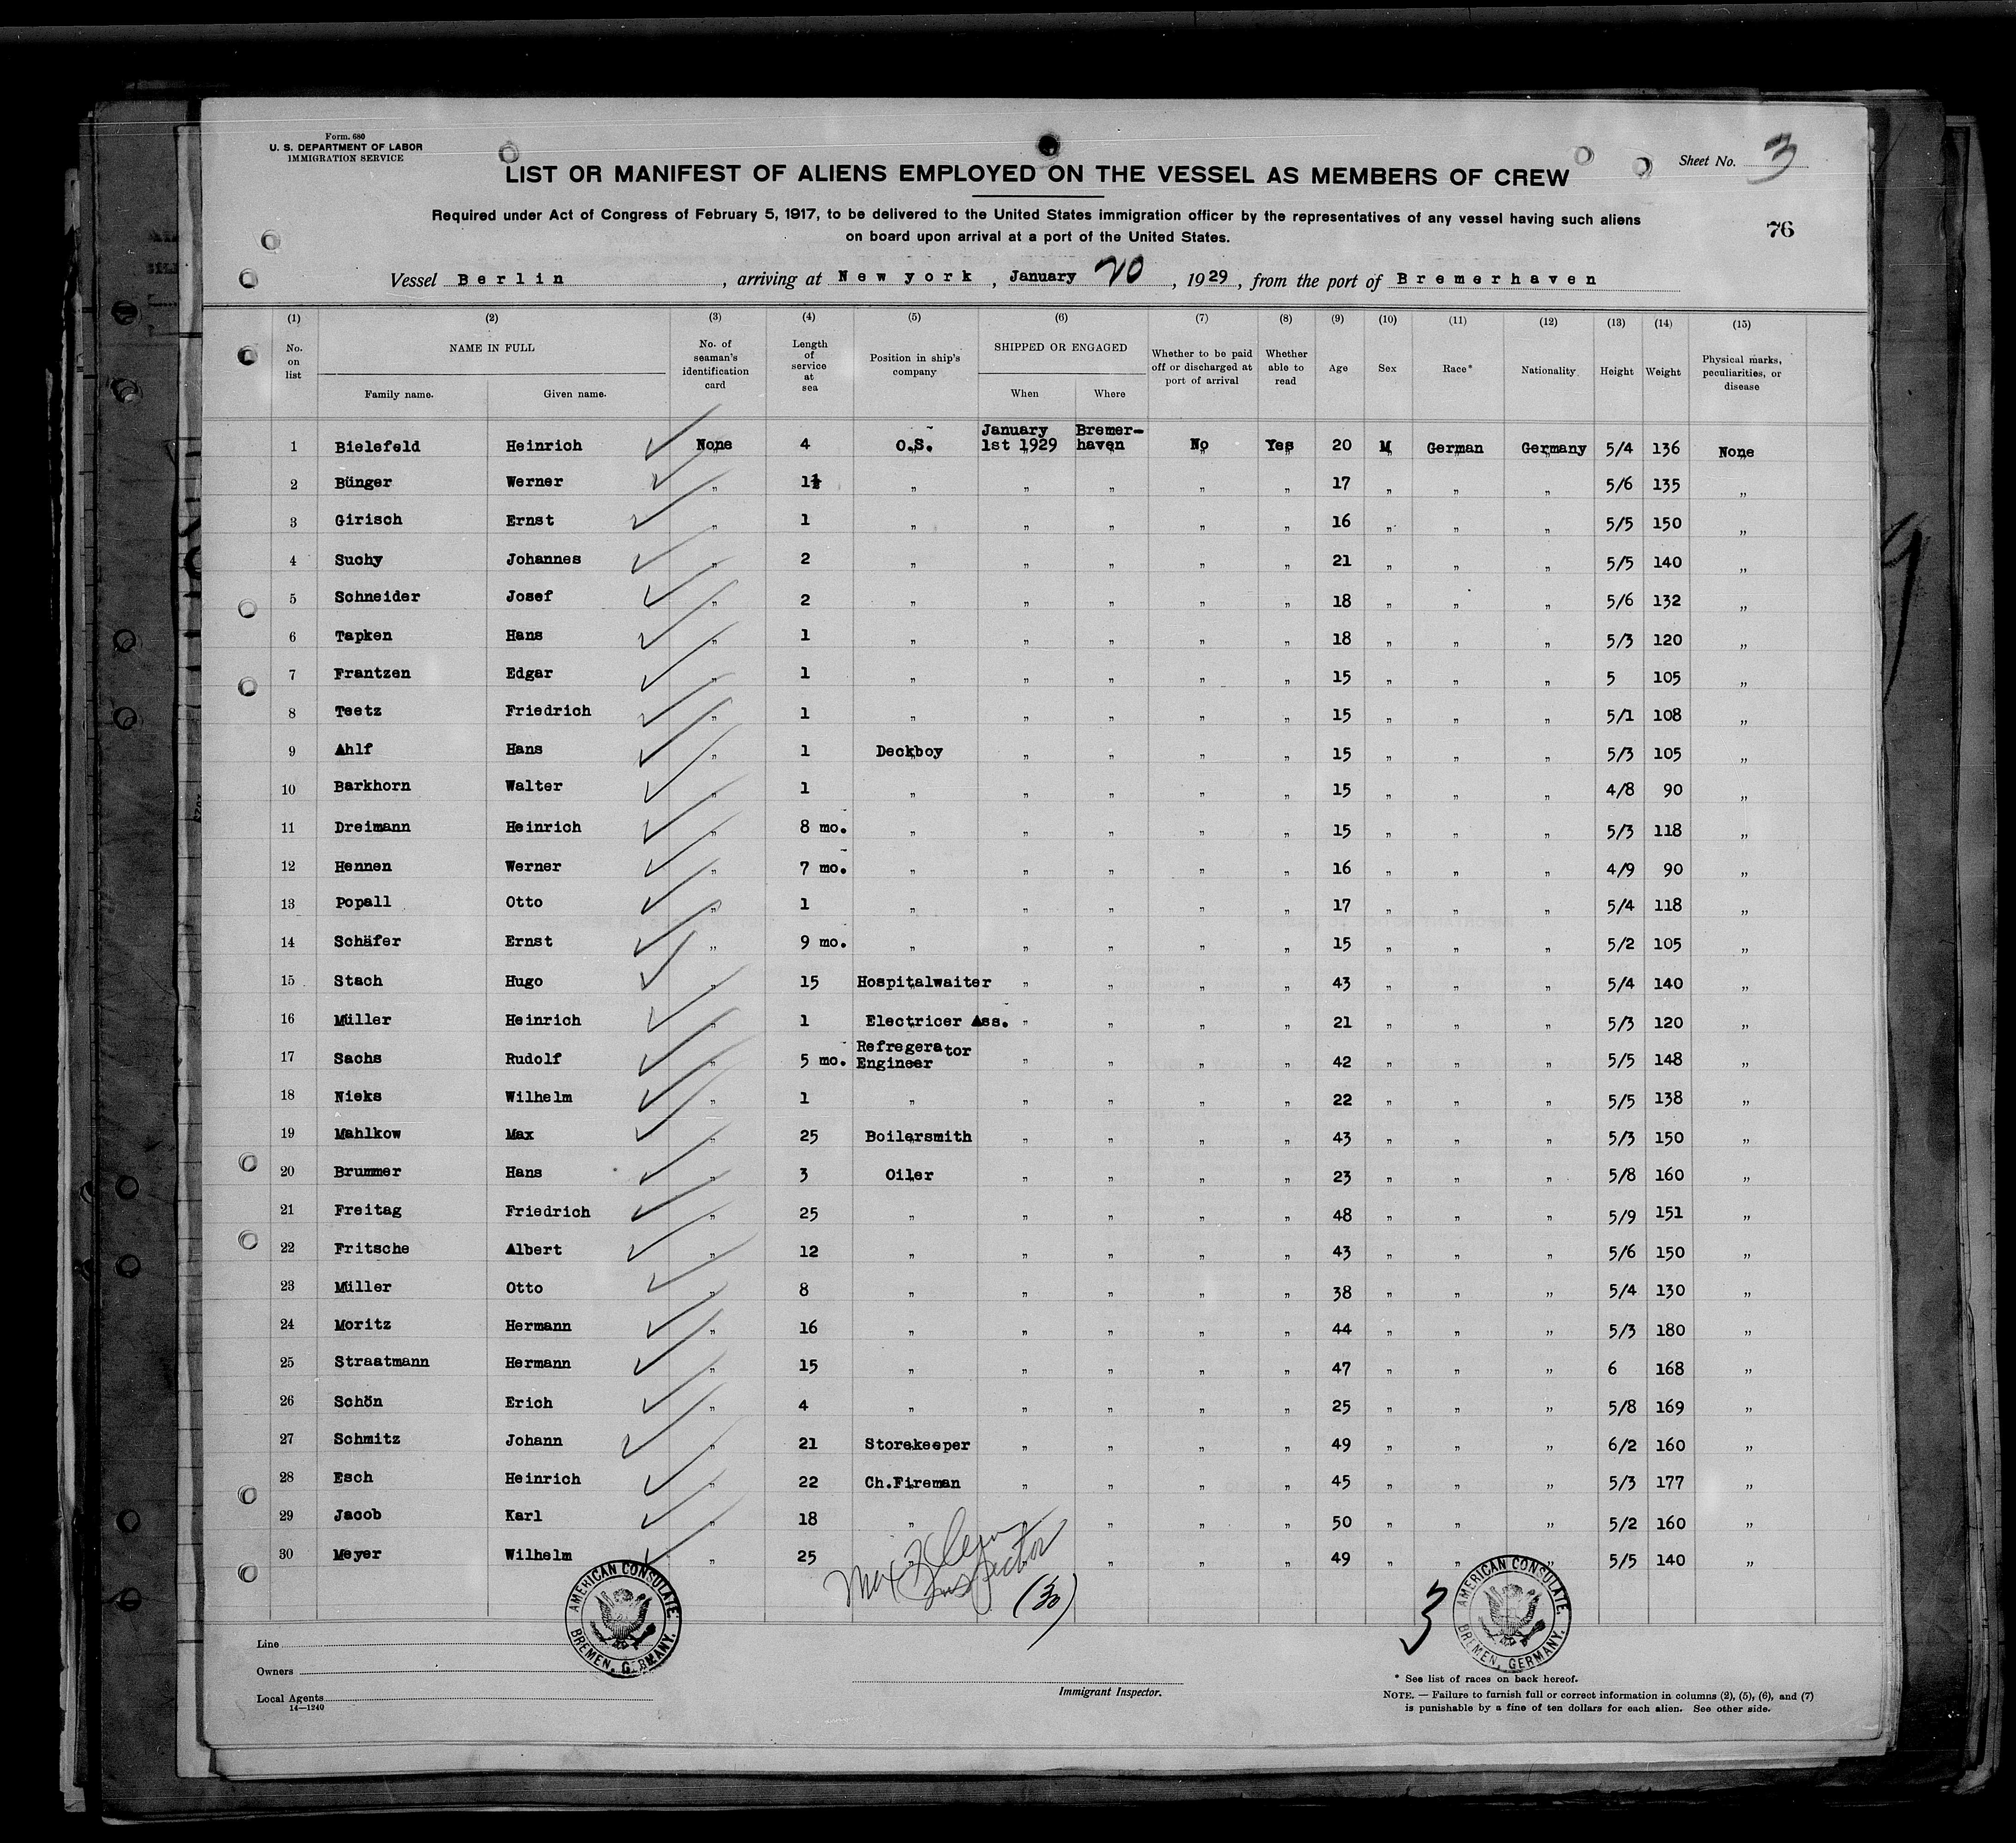 Form. 680
U. S. DEPARTMENT OF LABOR
IMMIGRATION SERVICE
Sheet No. 3
LIST OR MANIFEST OF ALIENS EMPLOYED ON THE VESSEL AS MEMBERS OF CREW
Required under Act of Congress of February 5, 1917, to be delivered to the United States immigration officer by the representatives of any vessel having such aliens
on board upon arrival at a port of the United States.
76
Vessel Berlin, arriving at New york, January 20, 1929, from the port of Bremerhaven
(1) (2) (3) (4) (5) (6) (7) (8) (9) (10) (11) (12) (13) (14) (15)
No. on list NAME IN FULL Family name. Given name. No. of seaman's identification card Length of service at sea Position in ship's company SHIPPED OR ENGAGED When Where Whether to be paid off or discharged at port of arrival Whether able to read Age Sex Race* Nationality Height Weight Physical marks, peculiarities, or disease
1 Bielefeld Heinrich None 4 O.S. January 1st 1929 Bremer-haven No Yes 20 M German Germany 5/4 136 None
2 Bünger Werner „ 1½ „ „ „ „ „ 17 „ „ „ 5/6 135 „
3 Girisch Ernst „ 1 „ „ „ „ „ 16 „ „ „ 5/5 150 „
4 Suchy Johannes „ 2 „ „ „ „ „ 21 „ „ „ 5/5 140 „
5 Schneider Josef „ 2 „ „ „ „ „ 18 „ „ „ 5/6 132 „
6 Tapken Hans „ 1 „ „ „ „ „ 18 „ „ „ 5/3 120 „
7 Frantzen Edgar „ 1 „ „ „ „ „ 15 „ „ „ 5 105 „
8 Teetz Friedrich „ 1 „ „ „ „ „ 15 „ „ „ 5/1 108 „
9 Ahlf Hans „ 1 Deckboy „ „ „ „ 15 „ „ „ 5/3 105 „
10 Barkhorn Walter „ 1 „ „ „ „ „ 15 „ „ „ 4/8 90 „
11 Dreimann Heinrich „ 8 mo. „ „ „ „ „ 15 „ „ „ 5/3 118 „
12 Hennen Werner „ 7 mo. „ „ „ „ „ 16 „ „ „ 4/9 90 „
13 Popall Otto „ 1 „ „ „ „ „ 17 „ „ „ 5/4 118 „
14 Schäfer Ernst „ 9 mo. „ „ „ „ „ 15 „ „ „ 5/2 105 „
15 Stach Hugo „ 15 Hospitalwaiter „ „ „ „ 43 „ „ „ 5/4 140 „
16 Müller Heinrich „ 1 Electricer Ass. „ „ „ „ 21 „ „ „ 5/3 120 „
17 Sachs Rudolf „ 5 mo. Refregerator Engineer „ „ „ „ 42 „ „ „ 5/5 148 „
18 Nieks Wilhelm „ 1 „ „ „ „ „ 22 „ „ „ 5/5 138 „
19 Mahlkow Max „ 25 Boilersmith „ „ „ „ 43 „ „ „ 5/3 150 „
20 Brummer Hans „ 3 Oiler „ „ „ „ 23 „ „ „ 5/8 160 „
21 Freitag Friedrich „ 25 „ „ „ „ „ 48 „ „ „ 5/9 151 „
22 Fritsche Albert „ 12 „ „ „ „ „ 43 „ „ „ 5/6 150 „
23 Müller Otto „ 8 „ „ „ „ „ 38 „ „ „ 5/4 130 „
24 Moritz Hermann „ 16 „ „ „ „ „ 44 „ „ „ 5/3 180 „
25 Straatmann Hermann „ 15 „ „ „ „ „ 47 „ „ „ 6 168 „
26 Schön Erich „ 4 „ „ „ „ „ 25 „ „ „ 5/8 169 „
27 Schmitz Johann „ 21 Storekeeper „ „ „ „ 49 „ „ „ 6/2 160 „
28 Esch Heinrich „ 22 Ch.Fireman „ „ „ „ 45 „ „ „ 5/3 177 „
29 Jacob Karl „ 18 „ „ „ „ „ 50 „ „ „ 5/2 160 „
30 Meyer Wilhelm „ 25 „ „ „ „ „ 49 „ „ „ 5/5 140 „
Max
Inspector
(30)
3
AMERICAN CONSULATE, BREMEN, GERMANY.
AMERICAN CONSULATE, BREMEN, GERMANY.
Line
Owners
Local Agents
14—1240
Immigrant Inspector.
* See list of races on back hereof.
NOTE. — Failure to furnish full or correct information in columns (2), (5), (6), and (7)
is punishable by a fine of ten dollars for each alien. See other side.